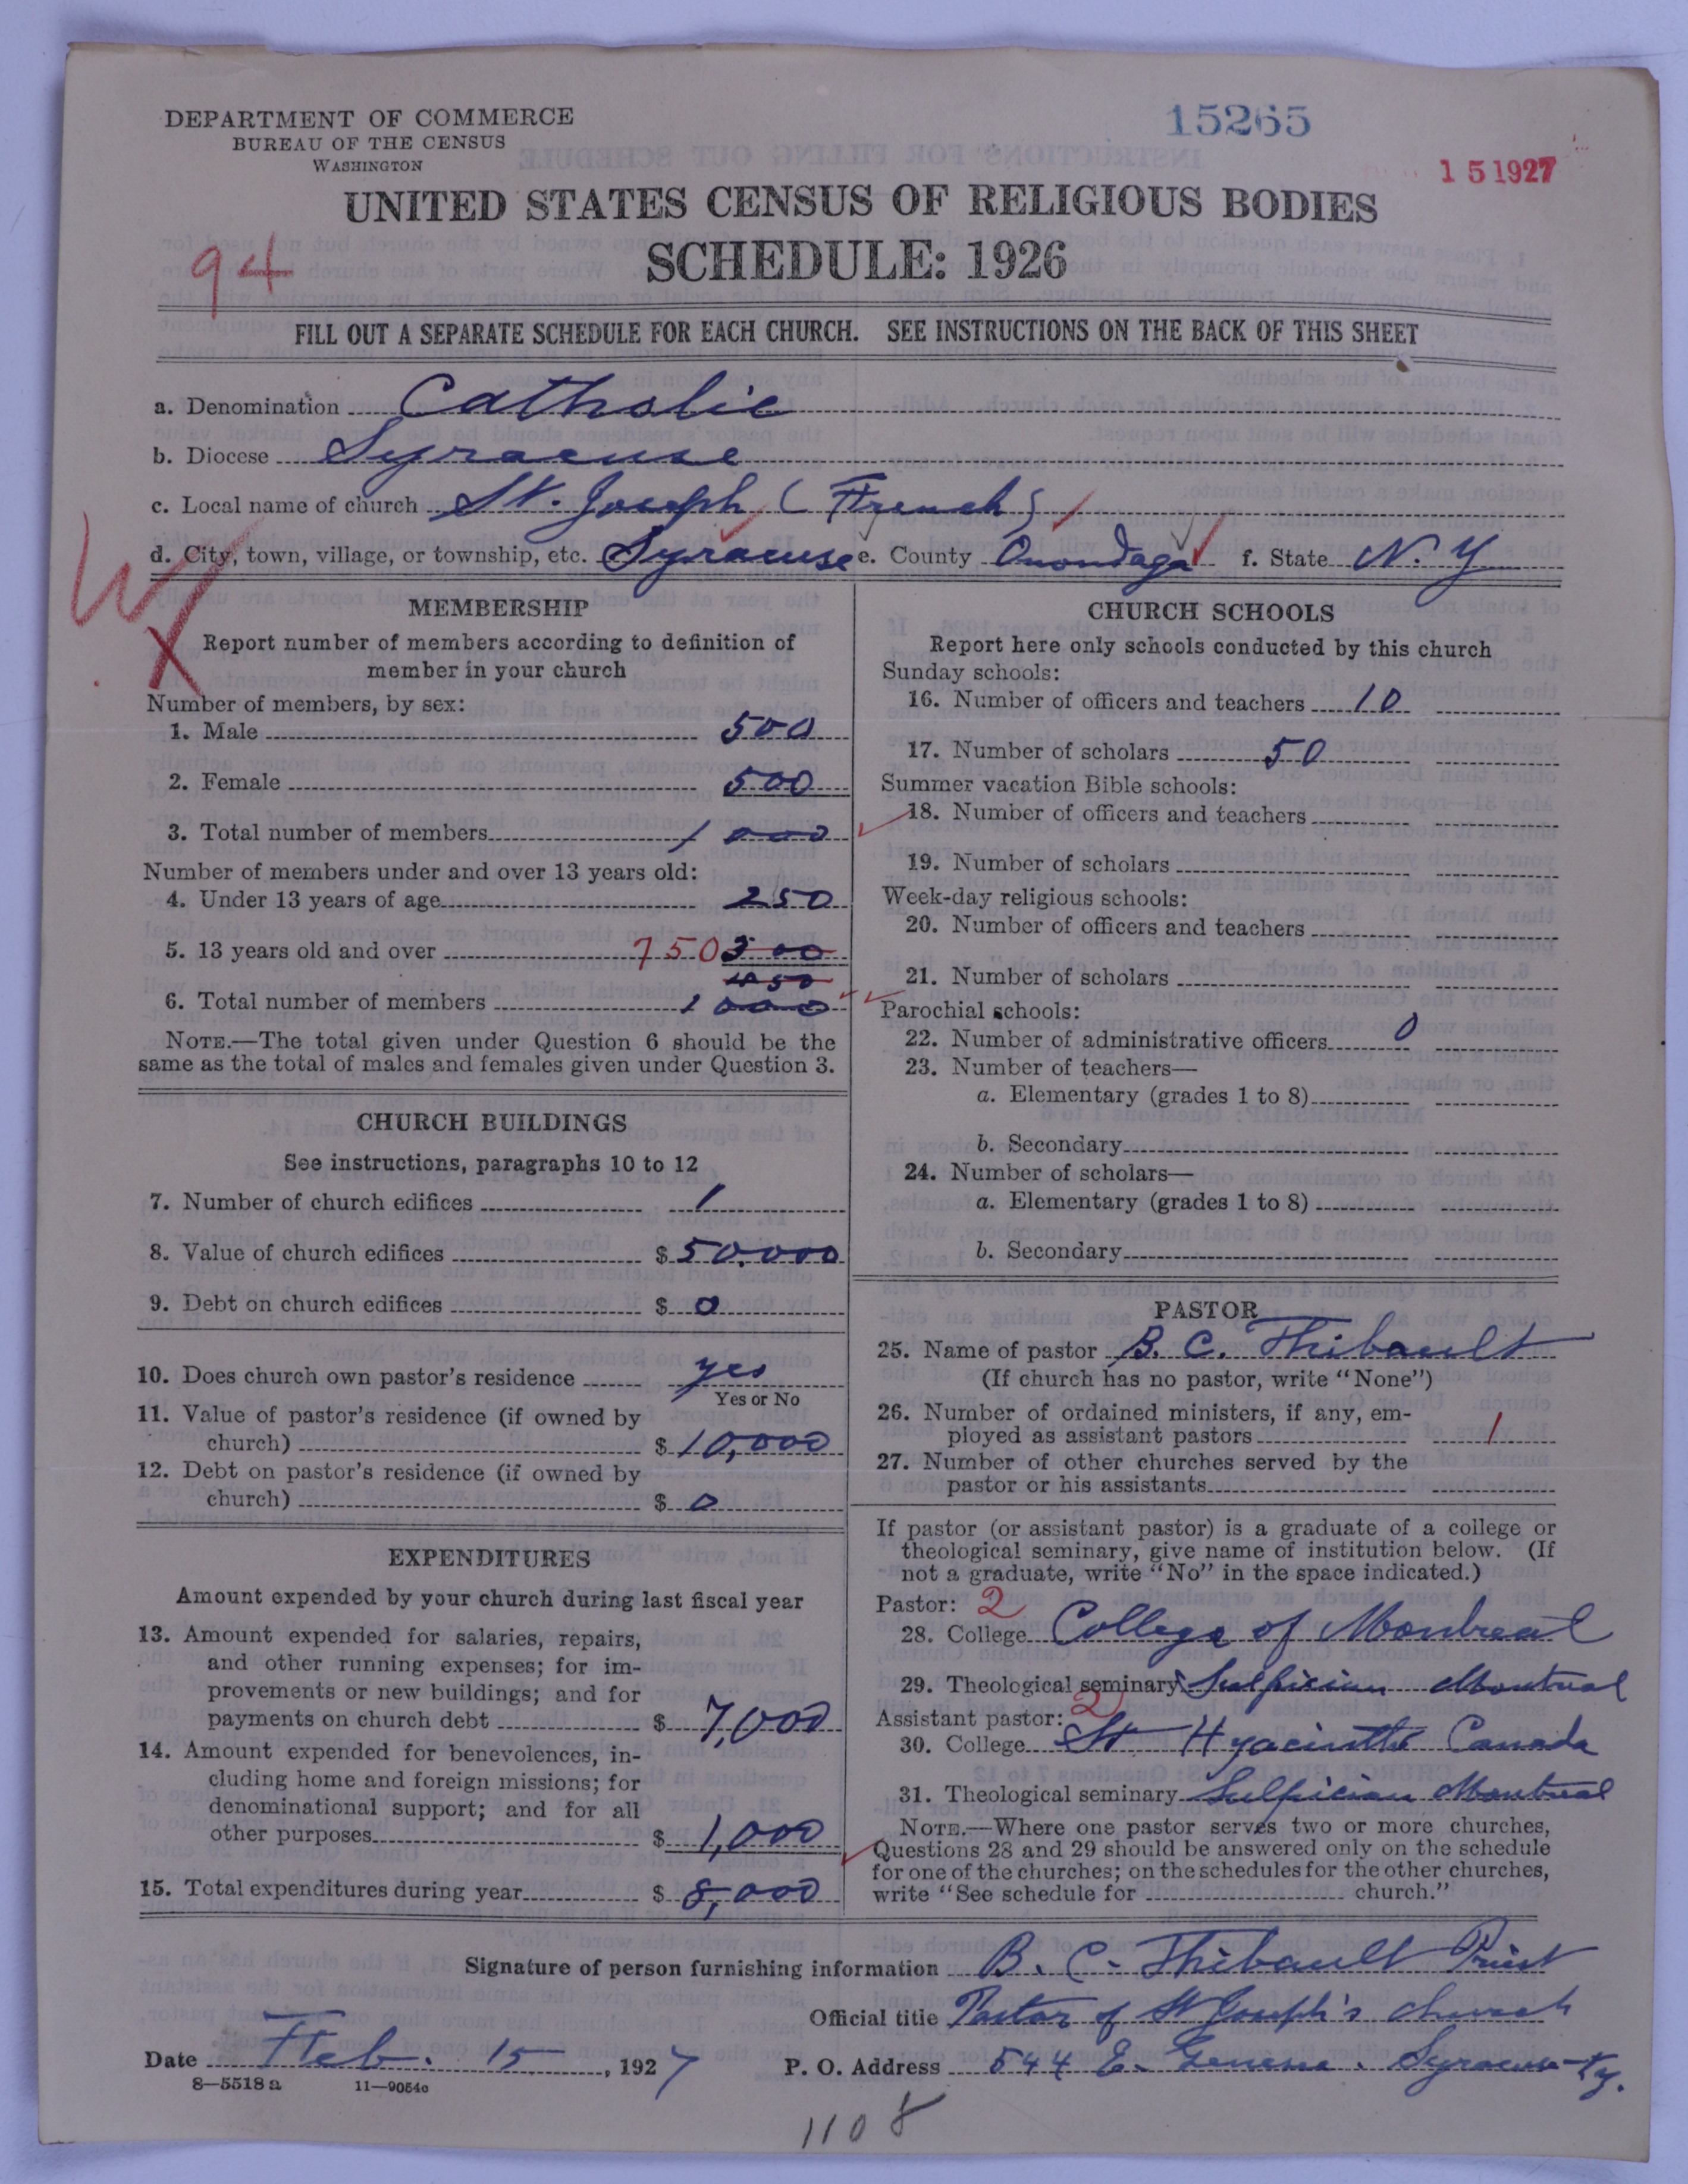 DEPARTMENT OF COMMERCE
BUREAU OF THE CENSUS
WASHINGTON
15265
15 1927
UNITED STATES CENSUS OF RELIGIOUS BODIES
SCHEDULE: 1926
94
FILL OUT A SEPARATE SCHEDULE FOR EACH CHURCH. SEE INSTRUCTIONS ON THE BACK OF THIS SHEET
a. Denomination Catholic
b. Diocese Syracuse
c. Local name of church St. Joseph (French)
d. City, town, village, or township, etc. Syracuse e. County Onondaga f. State N. Y
MEMBERSHIP
Report number of members according to definition of
member in your church
Number of members, by sex:
1. Male 500
2. Female 500
3. Total number of members 1 000
Number of members under and over 13 years old:
4. Under 13 years of age 250
5. 13 years old and over 750 300
450
6. Total number of members 1 000
NOTE.—The total given under Question 6 should be the
same as the total of males and females given under Question 3.
CHURCH BUILDINGS
See instructions, paragraphs 10 to 12
7. Number of church edifices 1
8. Value of church edifices $ 50.000
9. Debt on church edifices $ 0
10. Does church own pastor's residence yes
Yes or No
11. Value of pastor's residence (if owned by
church) $ 10,000
12. Debt on pastor's residence (if owned by
church) $ 0
EXPENDITURES
Amount expended by your church during last fiscal year
13. Amount expended for salaries, repairs,
and other running expenses; for im-
provements or new buildings; and for
payments on church debt $ 7,000
14. Amount expended for benevolences, in-
cluding home and foreign missions; for
denominational support; and for all
other purposes $ 1,000
15. Total expenditures during year $ 8,000
CHURCH SCHOOLS
Report here only schools conducted by this church
Sunday schools:
16. Number of officers and teachers 10
17. Number of scholars 50
Summer vacation Bible schools:
18. Number of officers and teachers
19. Number of scholars
Week-day religious schools:
20. Number of officers and teachers
21. Number of scholars
Parochial schools:
22. Number of administrative officers 0
23. Number of teachers—
a. Elementary (grades 1 to 8)
b. Secondary
24. Number of scholars—
a. Elementary (grades 1 to 8)
b. Secondary
PASTOR
25. Name of pastor B. C. Thibault
(If church has no pastor, write "None")
26. Number of ordained ministers, if any, em-
ployed as assistant pastors 1
27. Number of other churches served by the
pastor or his assistants
If pastor (or assistant pastor) is a graduate of a college or
theological seminary, give name of institution below. (If
not a graduate, write "No" in the space indicated.)
Pastor: 2
28. College College of Montreal
29. Theological seminary Sulpician Montreal
Assistant pastor: 2
30. College St Hyacinthe Canada
31. Theological seminary Sulpician Montreal
NOTE.—Where one pastor serves two or more churches,
Questions 28 and 29 should be answered only on the schedule
for one of the churches; on the schedules for the other churches,
write "See schedule for church."
Signature of person furnishing information B. C. Thibault Priest
Official title Pastor of St Joseph's church
Date Feb. 15, 1927 P. O. Address 544 E. Genesee. Syracuse
8—5518 a 11—9054c
1108